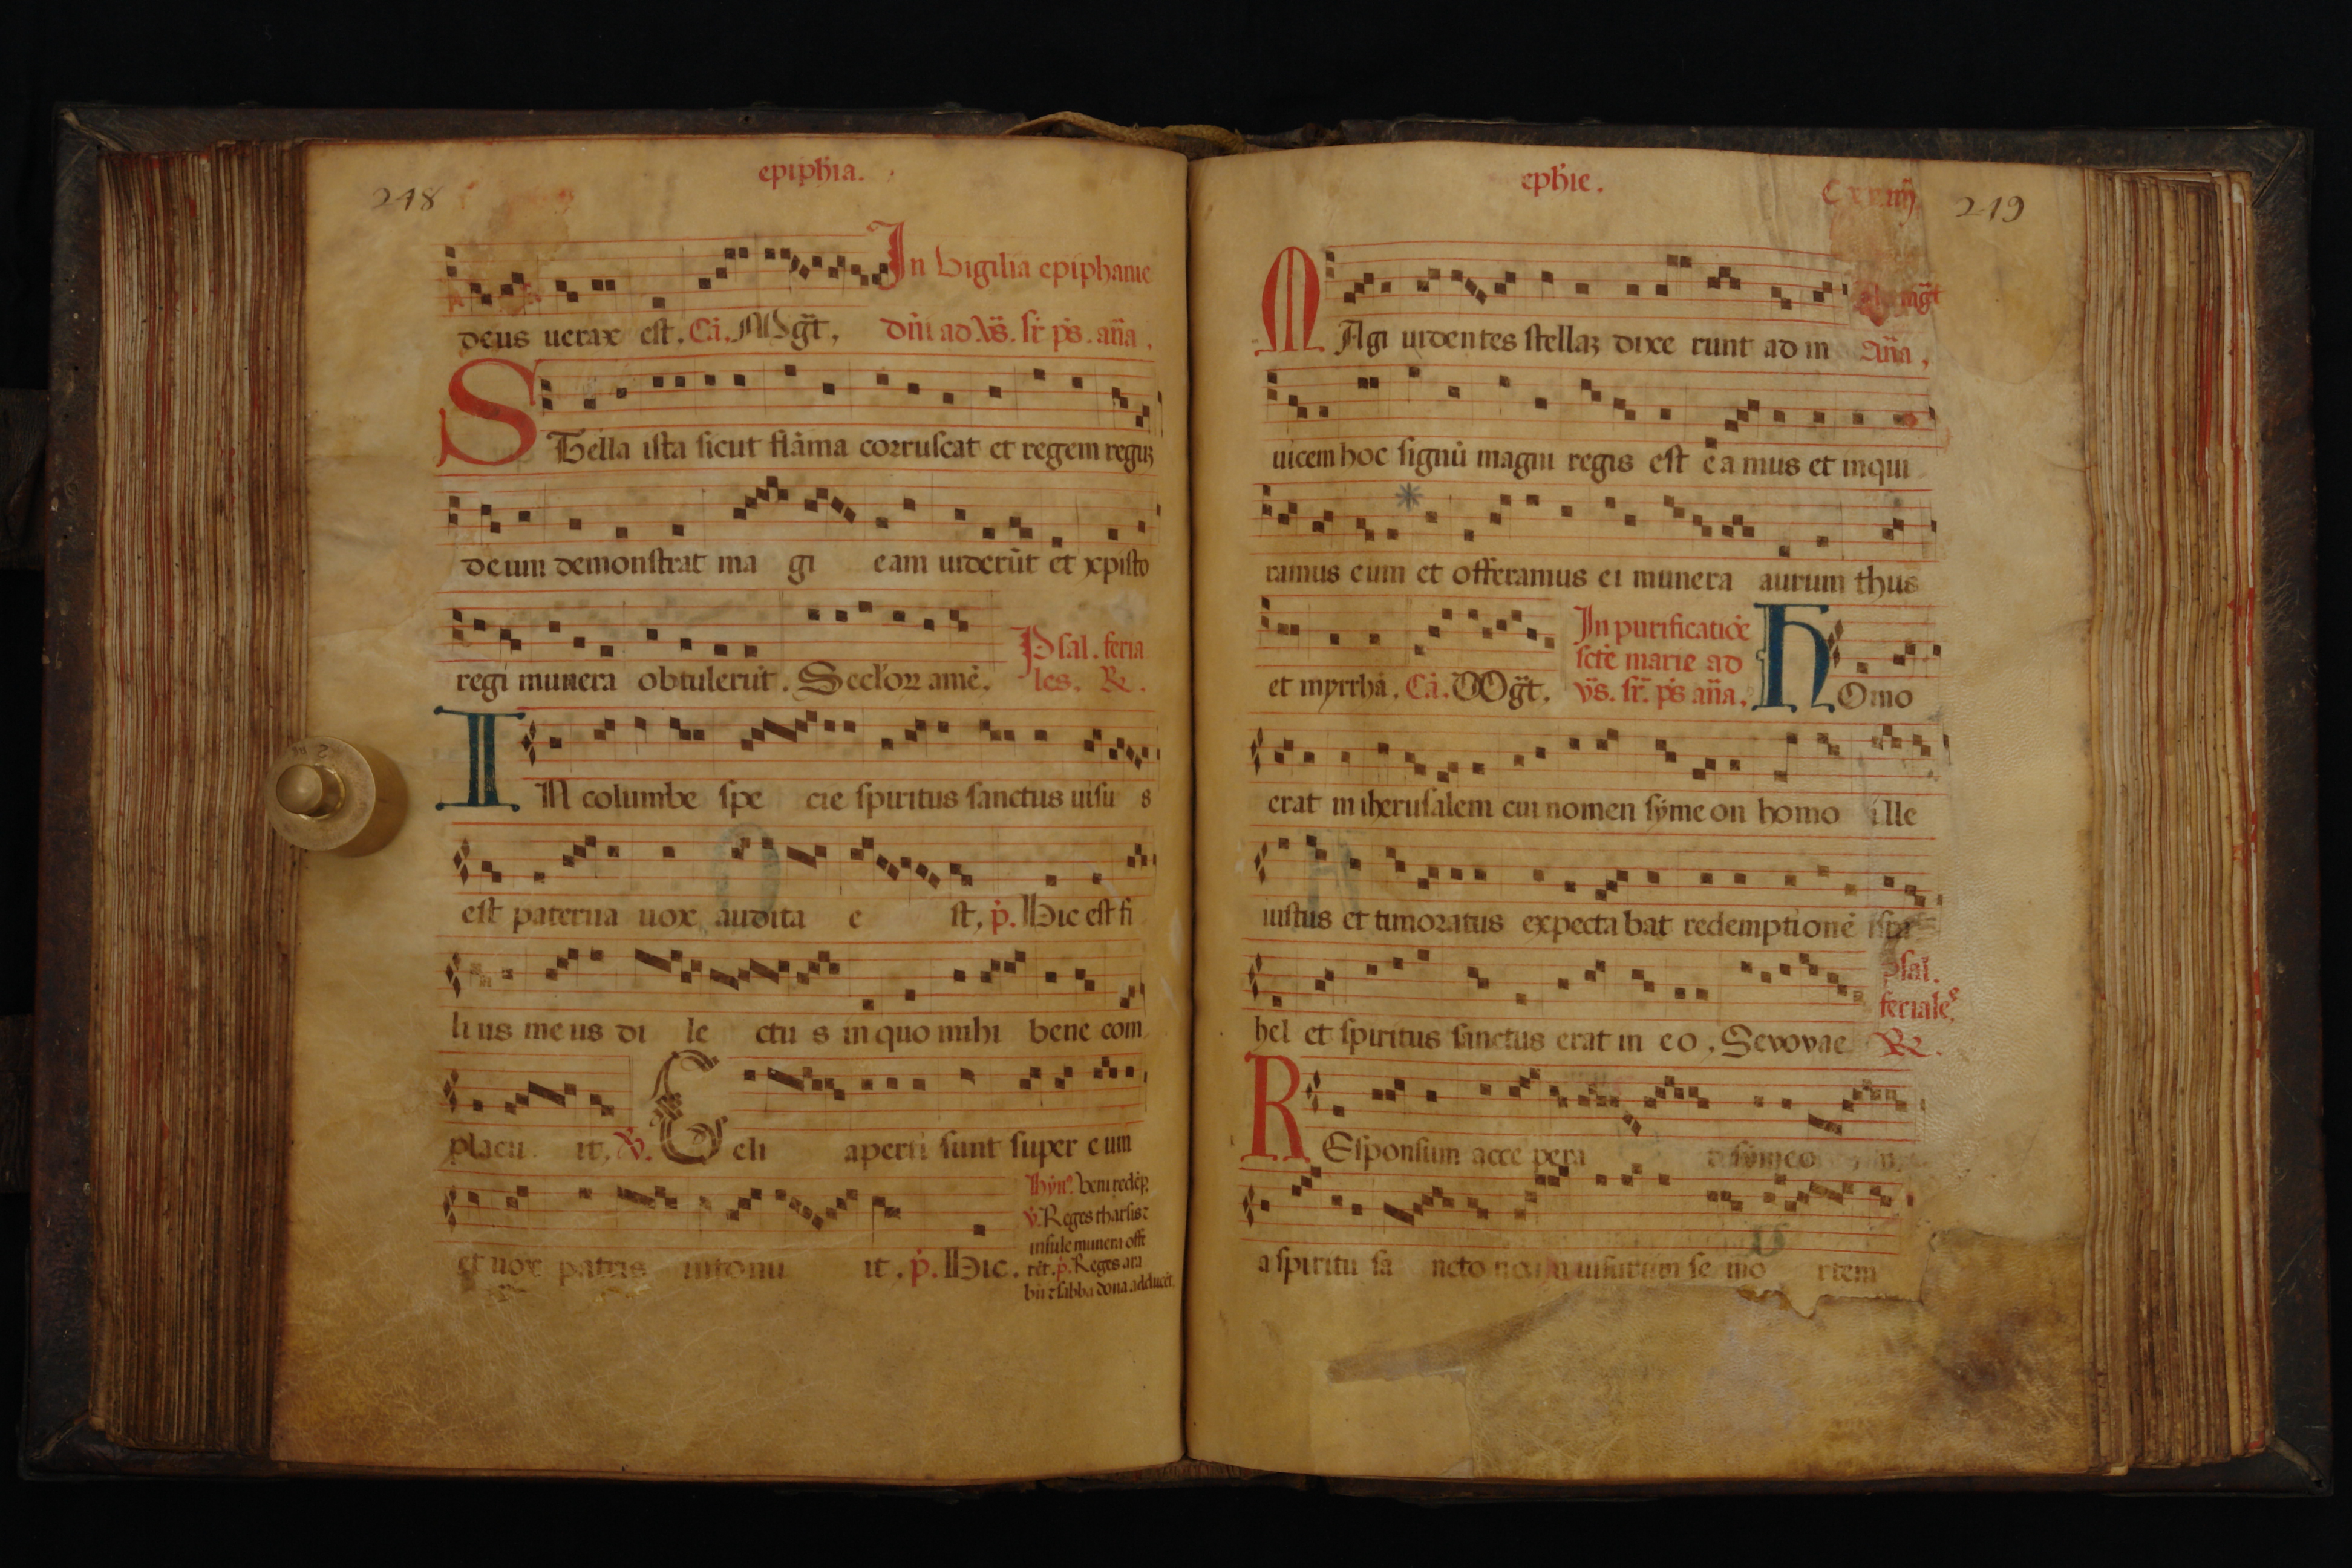 epiph̄ia.
218
In vigilia epiphanie
deus uerax est. Cā. Mgt̄, dn̄i ad v̄s. sr̄ ps̄. an̄a.
STella ista sicut flāma corruscat et regem regū
deum demonstrat ma gi eam uiderūt et xpisto
regi munera obtulerūt. Seclor amē. Psal. feria
les. R.
IN columbe spe cie spiritus sanctus uisu s
est paterna uox audita e st, p. Hic est fi
li us me us di le ctu s in quo mihi bene com
placu it. V. Celi aperti sunt super eum
et uox patris intonu it. p. Hic.
Hyn̄. Veni redēp.
v. Reges tharsis 7
insule munera offe
rēt. p. Reges ara
bū 7 sabba dona adducēt.
ephie.
219
MAgi uidentes stellaʒ dixe runt ad in
mgt̄
an̄a,
uicem hoc signū magni regis est e a mus et inqui
ramus eum et offeramus ei munera aurum thus
et myrrhā. Cā. Mgt̄. In purificatiōe
sctē marie ad
v̄s. sr̄. ps̄ an̄a. HOmo
erat in iherusalem cui nomen symeon homo ille
iustus et timoratus expecta bat redemptionē isra
hel et spiritus sanctus erat in eo. Sevovae
psal.
feriale
R.
REsponsum acce pera t symeo n
a spiritu sa ncto non uisurum se mo rtem